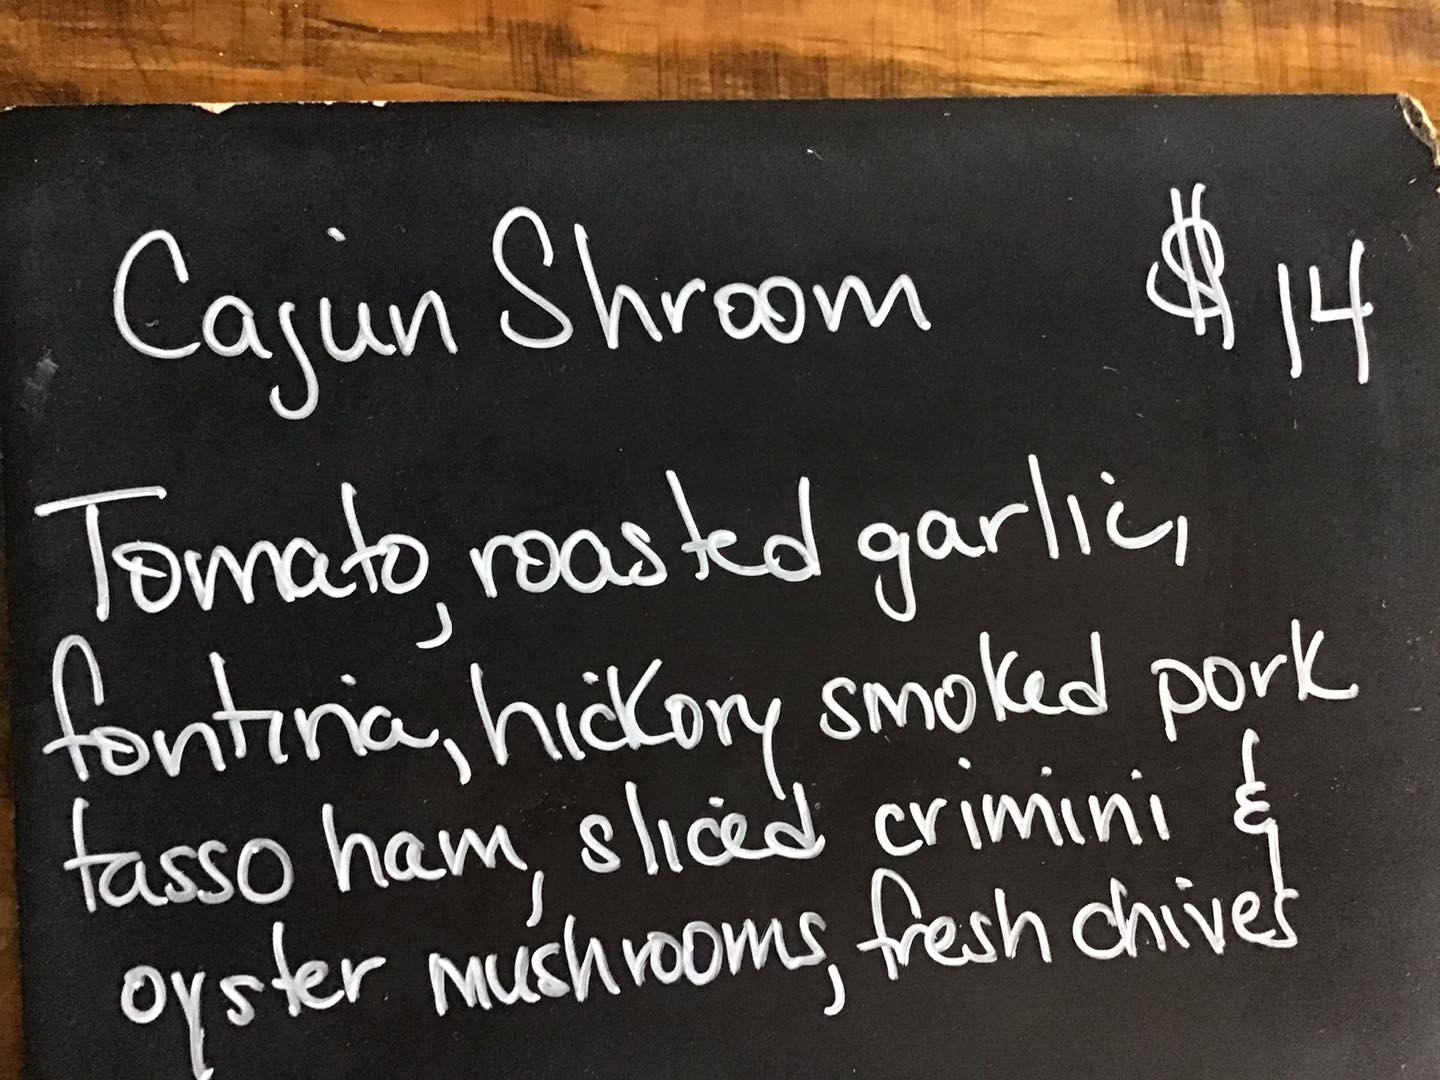 Cajun Shroom $14
Tomato, roasted garlic,
fontina, hickory smoked pork
tasso ham, sliced crimini &
oyster mushrooms, fresh chives